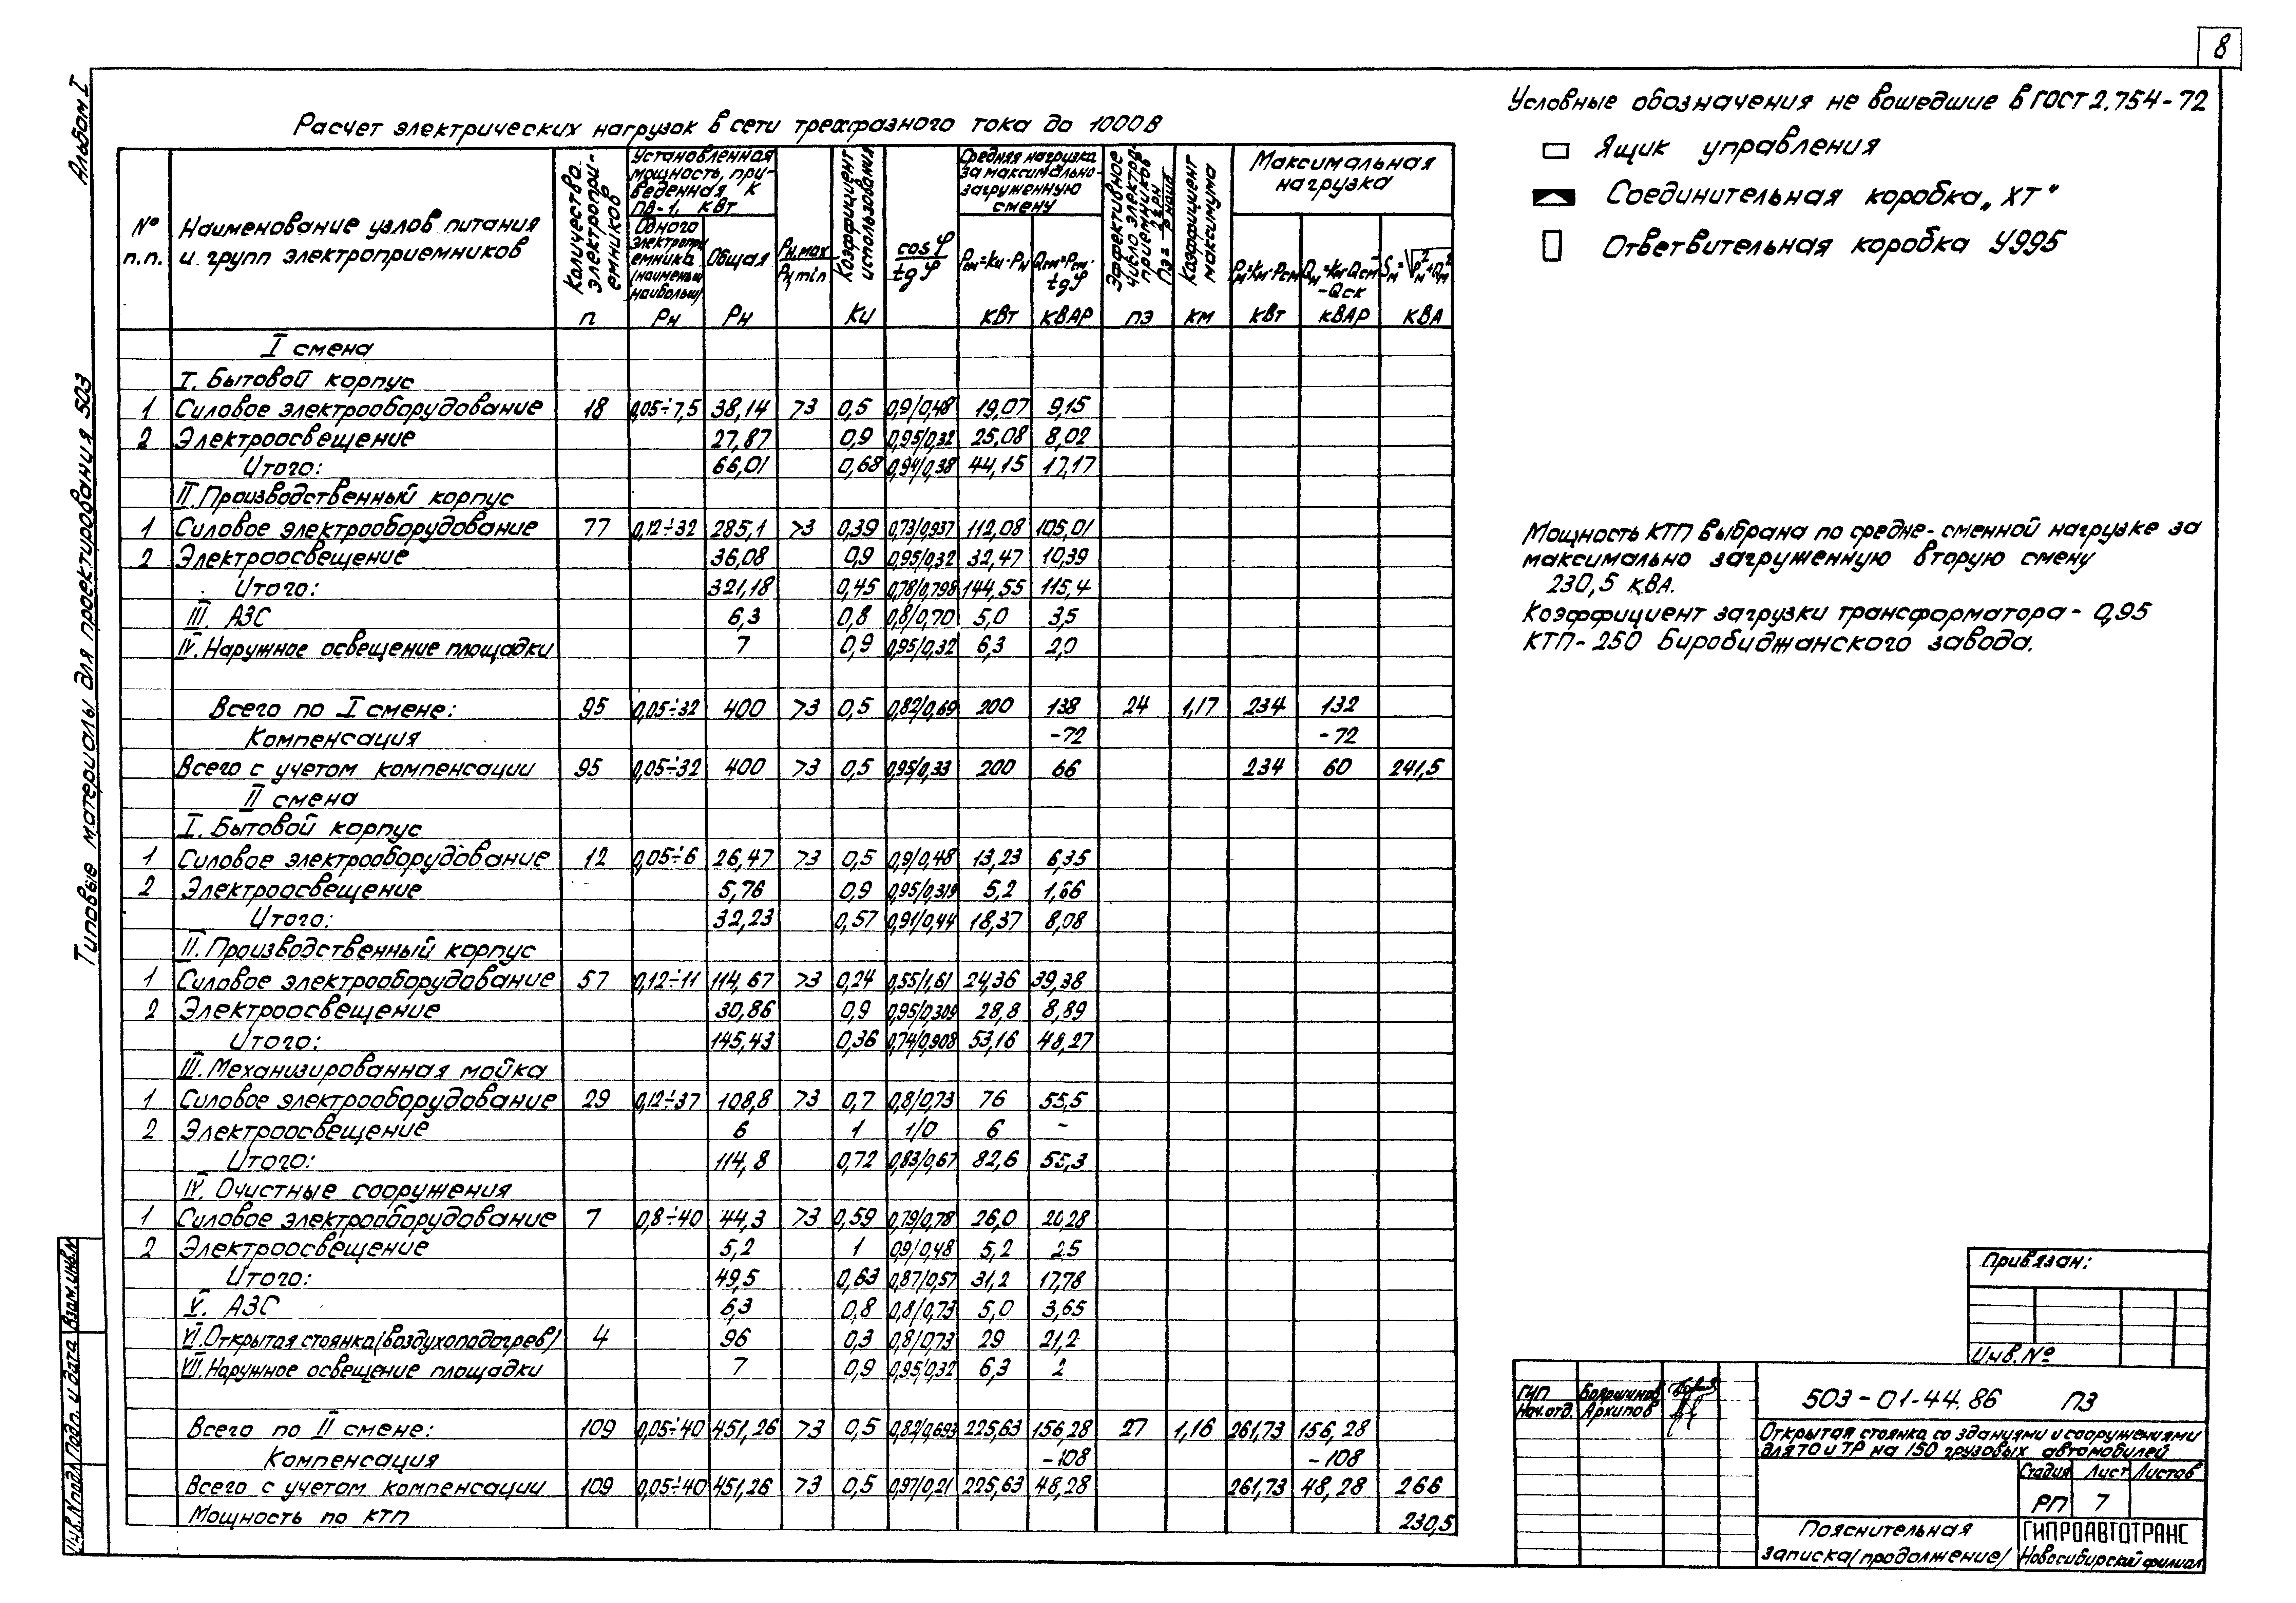 8
Альбом I
Типовые материалы для проектирования 503
Расчет электрических нагрузок в сети трехфазного тока до 1000В
№ п.п.
Наименование узлов питания и групп электроприемников
Количество электроприемников n
Установленная мощность, приведенная к ПВ-1, кВт
Одного электроприемника (наименьш/наибольш) Рн
Общая Рн
Рн.max/Рн.min
Коэффициент использования Ки
cosφ/tgφ
Средняя нагрузка за максимально-загруженную смену
Рсм=Ки·Рн кВт
Qсм=Рсм·tgφ кВАР
Эффективное число электроприемников nэ
Коэффициент максимума км
Максимальная нагрузка
Рм=Км·Рсм кВт
Qм=Км·Qсм-Qск кВАР
Sм=√Рм²+Qм² кВА
I смена
I. Бытовой корпус
1 Силовое электрооборудование 18 0,05÷7,5 38,14 >3 0,5 0,9/0,48 19,07 9,15
2 Электроосвещение 27,87 0,9 0,95/0,32 25,08 8,02
Итого: 66,01 0,68 0,94/0,38 44,15 17,17
II. Производственный корпус
1 Силовое электрооборудование 77 0,12÷32 285,1 >3 0,39 0,73/0,937 112,08 105,01
2 Электроосвещение 36,08 0,9 0,95/0,32 32,47 10,39
Итого: 321,18 0,45 0,78/0,798 144,55 115,4
III. АЗС 6,3 0,8 0,8/0,70 5,0 3,5
IV. Наружное освещение площадки 7 0,9 0,95/0,32 6,3 2,0
Всего по I смене: 95 0,05÷32 400 >3 0,5 0,82/0,69 200 138 24 1,17 234 132
Компенсация -72 -72
Всего с учетом компенсации 95 0,05÷32 400 >3 0,5 0,95/0,33 200 66 234 60 241,5
II смена
I. Бытовой корпус
1 Силовое электрооборудование 12 0,05÷6 26,47 >3 0,5 0,9/0,48 13,23 6,35
2 Электроосвещение 5,76 0,9 0,95/0,319 5,2 1,66
Итого: 32,23 0,57 0,91/0,44 18,37 8,08
II. Производственный корпус
1 Силовое электрооборудование 57 0,12÷11 114,67 >3 0,24 0,55/1,61 24,36 39,38
2 Электроосвещение 30,86 0,9 0,95/0,309 28,8 8,89
Итого: 145,43 0,36 0,74/0,908 53,16 48,27
III. Механизированная мойка
1 Силовое электрооборудование 29 0,12÷37 108,8 >3 0,7 0,8/0,73 76 55,5
2 Электроосвещение 6 1 1/0 6 -
Итого: 114,8 0,72 0,83/0,67 82,6 55,3
IV. Очистные сооружения
1 Силовое электрооборудование 7 0,8÷40 44,3 >3 0,59 0,79/0,78 26,0 20,28
2 Электроосвещение 5,2 1 0,9/0,48 5,2 2,5
Итого: 49,5 0,63 0,87/0,57 31,2 17,78
V. АЗС 6,3 0,8 0,8/0,73 5,0 3,65
VI. Открытая стоянка (воздухоподогрев) 4 96 0,3 0,8/0,73 29 21,2
VII. Наружное освещение площадки 7 0,9 0,95/0,32 6,3 2
Всего по II смене: 109 0,05÷40 451,26 >3 0,5 0,82/0,693 225,63 156,28 27 1,16 261,73 156,28
Компенсация -108 -108
Всего с учетом компенсации 109 0,05÷40 451,26 >3 0,5 0,97/0,21 225,63 48,28 261,73 48,28 266
Мощность по КТП 230,5
Условные обозначения не вошедшие в ГОСТ 2.754-72
Ящик управления
Соединительная коробка „ХТ"
Ответвительная коробка У995
Мощность КТП выбрана по средне-сменной нагрузке за
максимально загруженную вторую смену
230,5 кВА.
Коэффициент загрузки трансформатора - 0,95
КТП-250 Биробиджанского завода.
Привязан:
Инв. №
ГИП Бояршинов
Нач.отд. Архипов
503-01-44.86 ПЗ
Открытая стоянка со зданиями и сооружениями
для ТО и ТР на 150 грузовых автомобилей
Стадия Лист Листов
РП 7
Пояснительная
записка (продолжение)
ГИПРОАВТОТРАНС
Новосибирский филиал
Инв.№подл. Подп. и дата Взам.инв.№